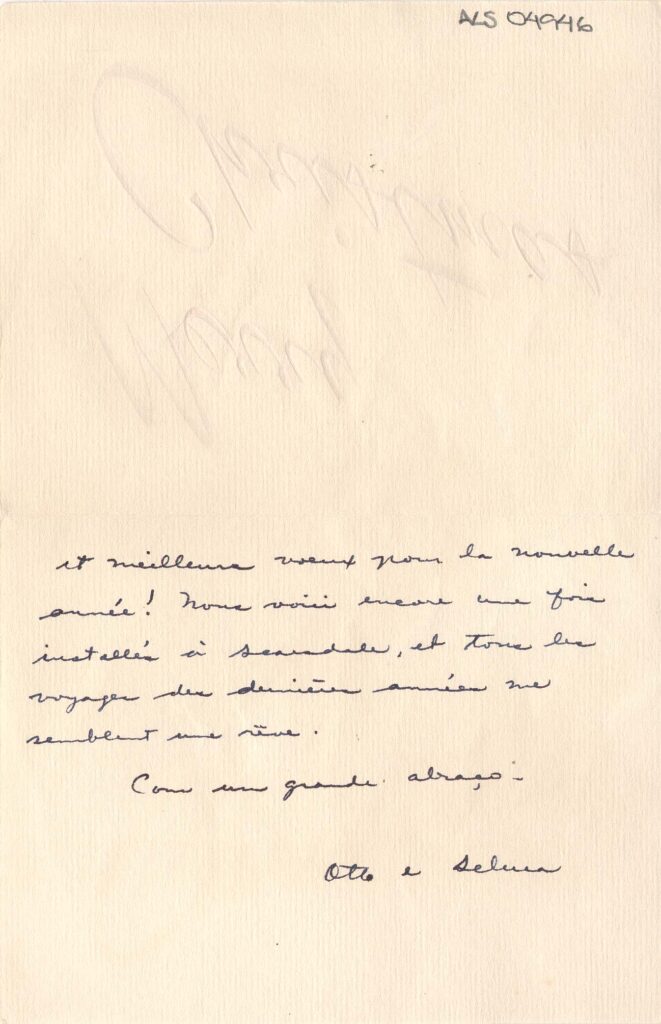 ALS 04946
Merry Christmas
et meilleurs voeux pour la nouvelle
année! Nous voici encore une fois
installés à Scarsdale, et tous les
voyages des dernières années me
semblent une rêve.
Com um grande abraço -
Otto e Selma